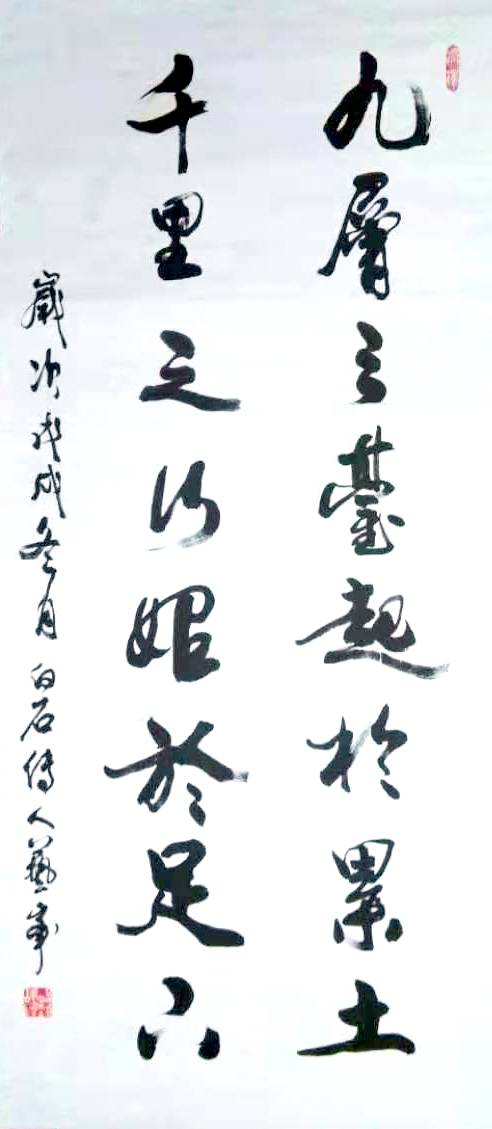 九層之臺起於累土
千里之行始於足下
歲次戊戌冬月白石傳人藝峯